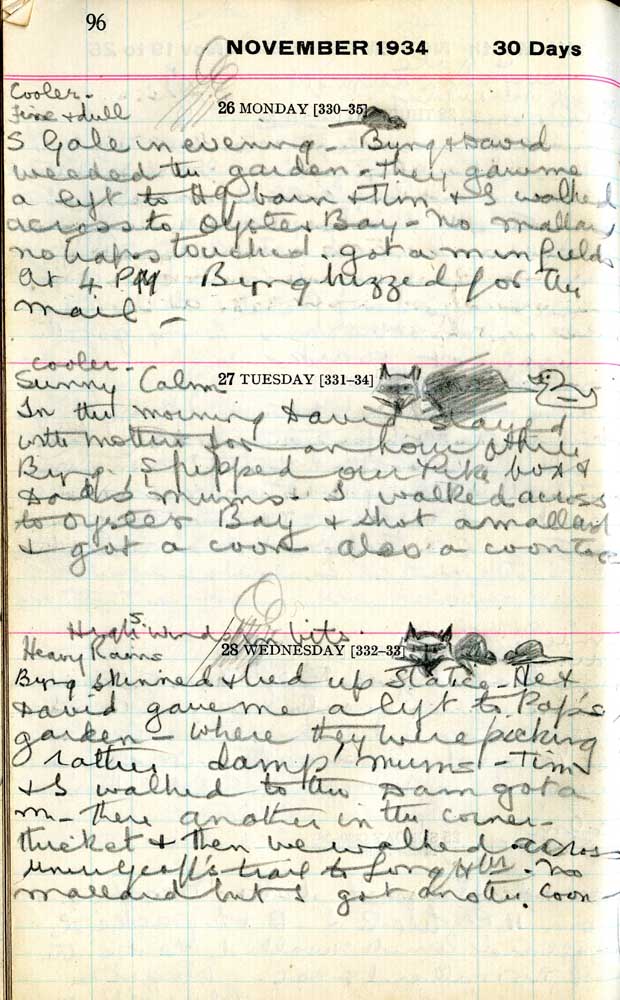 96
NOVEMBER 1934 30 Days
Cooler -
Fine & dull
26 MONDAY [330–35]
S Gale in evening - Byng & David
weeded the garden - They gave me
a lyft to HQ barn & Tim & I walked
across to Oyster Bay - No mallard
no traps touched. got a m in field
at 4 PM Byng hizzed for the
mail -
cooler -
Sunny Calm
27 TUESDAY [331–34]
In the morning David stayed
with mother for an hour while
Byng & I
mums. I walked across
to Oyster Bay & shot a mallard
& got a coon also a coon
High S. wind bits
Heavy Rains
28 WEDNESDAY [332–33]
Byng skinned & tied up Statice - He &
David gave me a lyft to Pop's
garden - where they were picking
rather damp mums - Tim
& I walked to the Dam got a
m - there another in the corner -
thicket & then we walked across
trail to Long No
mallard but I got another coon -